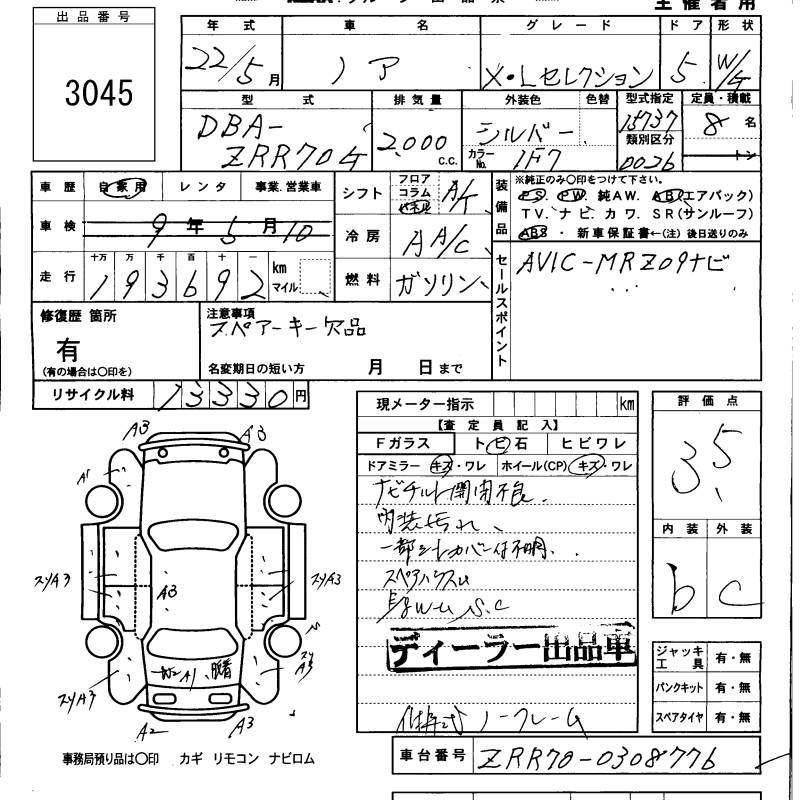 主催者用
出品番号
3045
年式 車名 グレード ドア 形状
22/5月 ノア X・Lセレクション 5 W/G
型式 排気量 外装色 色替 型式指定 定員・積載
DBA-ZRR70G 2,000c.c. シルバー 15737 8名
カラーNo. 1F7 類別区分 0026 トン
車歴 自家用 レンタ 事業.営業車
シフト フロア コラム パネル A/T
装備品 ※純正のみ〇印をつけて下さい。
PS. PW. 純AW. AB(エアバック)
TV. ナビ. カワ. SR(サンルーフ)
ABS ・ 新車保証書←(注) 後日送りのみ
車検 9年5月10
冷房 AA/C
走行 十万 万 千 百 十 一 km マイル
193692
燃料 ガソリン
セールスポイント AVIC-MRZ09ナビ
修復歴 箇所
有
(有の場合は〇印を)
注意事項
スペアーキー欠品
名変期日の短い方 月 日まで
リサイクル料 13330円
現メーター指示 km
【査定員記入】
Fガラス トビ石 ヒビワレ
ドアミラー キズ・ワレ ホイール(CP) キズ・ワレ
ナビチルト開閉不良.
内装汚れ、
一部シートカバー
ディーラー出品車
ノークレーム
評価点
3.5
内装 外装
b c
ジャッキ工具 有・無
パンクキット 有・無
スペアタイヤ 有・無
A3 A3
A1
スリA3 A3 スリA3
スリA3 A1 スリA3
A2 A3
事務局預り品は〇印 カギ リモコン ナビロム
車台番号 ZRR70-0308776